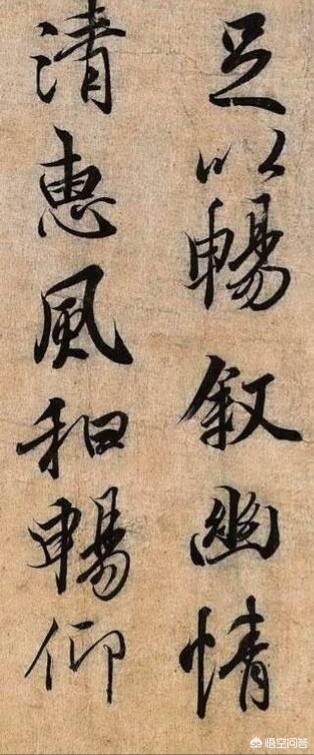 足以暢叙幽情
清惠風和暢仰
悟空问答